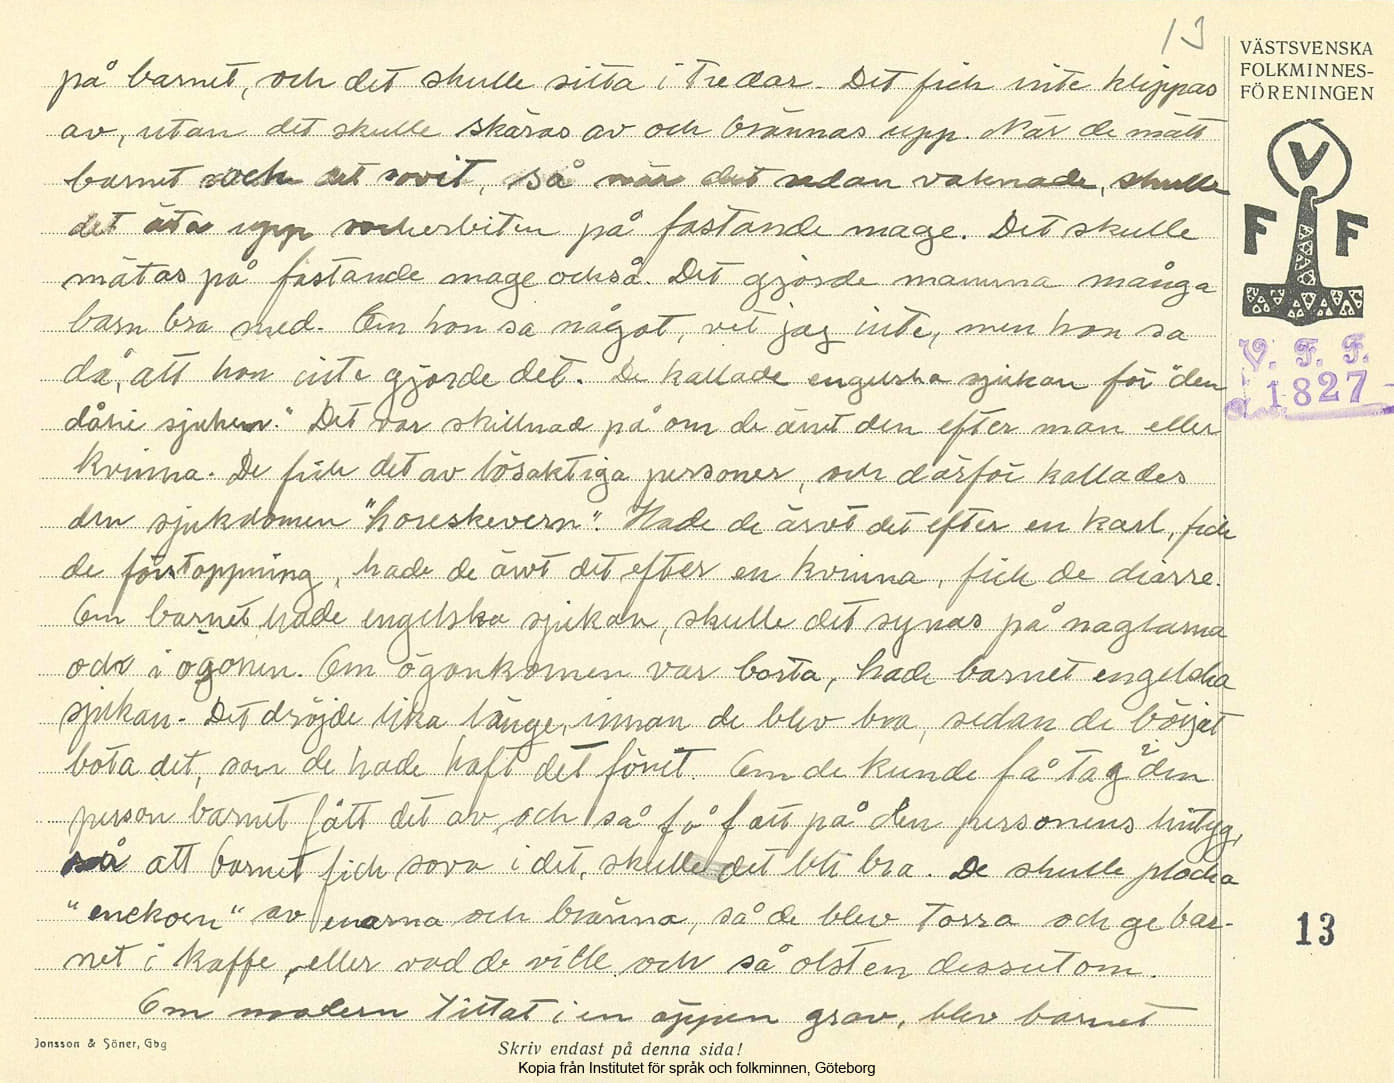 13
VÄSTSVENSKA
FOLKMINNES-
FÖRENINGEN
V
F F
V. F. F.
1827
på barnet, och det skulle sitta i tre dar. Det fick inte klippas
av, utan det skulle skäras av och brännas upp. När de mätt
barnet och det sovit, så när det sedan vaknade, skulle
det äta upp sockerbiten på fastande mage. Det skulle
mätas på fastande mage också. Det gjorde mamma många
barn bra med. Om hon sa något, vet jag inte, men hon sa
då, att hon inte gjorde det. De kallade engelska sjukan för "den
dålie sjuken". Det var skillnad på om de ärvt den efter man eller
kvinna. De fick det av lösaktiga personer, och därför kallades
den sjukdomen "horeskevern". Hade de ärvt det efter en karl, fick
de förstoppning, hade de ärvt det efter en kvinna, fick de diarre.
Om barnet hade engelska sjukan, skulle det synas på naglarna
och i ögonen. Om ögonkornen var borta, hade barnet engelska
sjukan. Det dröjde lika länge, innan de blev bra, sedan de börjat
bota det, som de hade haft det förut. Om de kunde få tag i den
person barnet fått det av, och så få fatt på den personens lintyg,
så att barnet fick sova i det, skulle det bli bra. De skulle plocka
"enekorn" av enarna och bränna, så de blev torra och ge bar-
net i kaffe, eller vad de ville och så olsten dessutom.
Om modern tittat i en öppen grav, blev barnet
13
Jonsson & Söner, Gbg
Skriv endast på denna sida!
Kopia från Institutet för språk och folkminnen, Göteborg